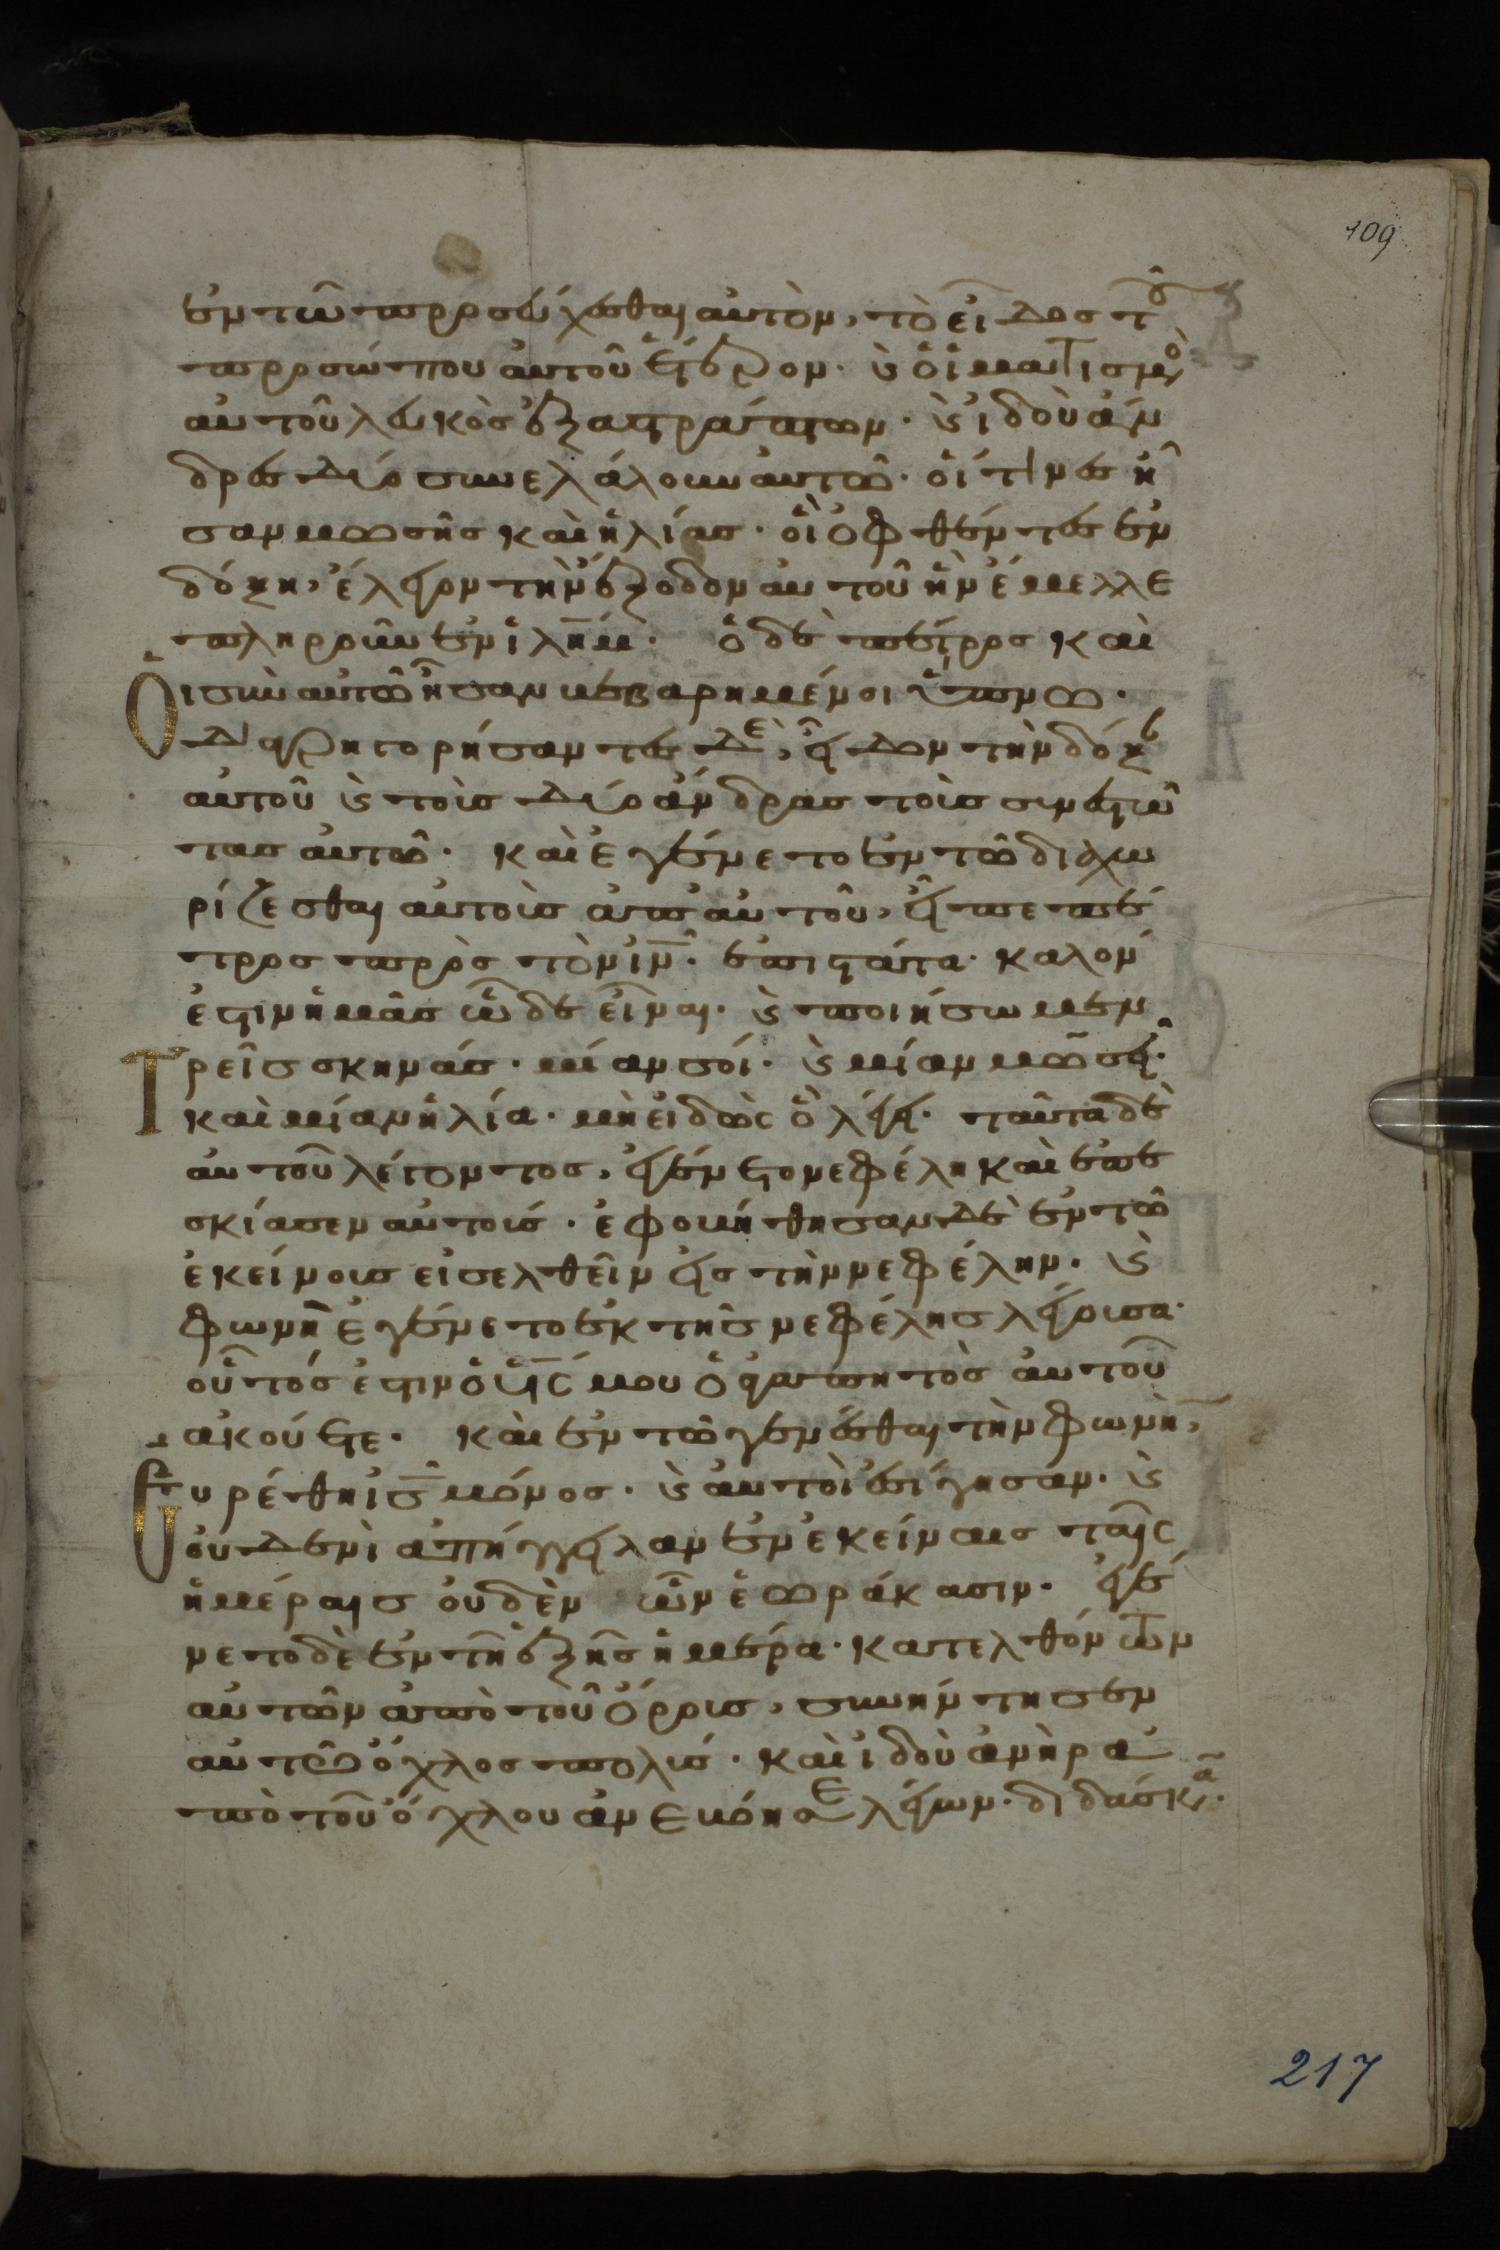 109
ἐν τῶ προσεύχεσθαι αὐτὸν, τὸ εἶδος τοῦ
προσώπου αὐτοῦ ἕτερον· κ̀ ὁ ἱματισμὸ
αὐτοῦ λευκὸς ἐξαστράπτων· κ̀ ἰδοὺ ἄν
δρες δύο συνελάλουν αὐτῶ· οἵτινες ἦ
σαν μωσῆς καὶ ἡλίας· οἳ ὀφθέντες ἐν
δόξη, ἔλεγον τὴν ἔξοδον αὐτοῦ ἣν ἔμελλε
πληροῦν ἐν ἱλη̅μ· ὁ δὲ πέτρος καὶ
οἱ σὺν αὐτῶ ἦσαν βεβαρημένοι ὕπνω·
Διαγρηγορήσαντες δὲ, εἶδον τὴν δόξαν
αὐτοῦ κ̀ τοὺς δύο ἄνδρας τοὺς συνεστῶ
τας αὐτῶ· καὶ ἐγένετο ἐν τῶ διαχω
ρίζεσθαι αὐτοὺς ἀπ' αὐτοῦ, εἶπε πέ
τρος πρὸς τὸν ἰ̅ν̅· ἐπιστάτα· καλόν
ἐστιν ἡμᾶς ὧδε εἶναι· κ̀ ποιήσωμεν
Τρεῖς σκηνάς· μίαν σοί· κ̀ μίαν μωσεῖ·
καὶ μίαν ἡλία· μὴ εἰδὼς ὃ λέγει· ταῦτα δὲ
αὐτοῦ λέγοντος, ἐγένετο νεφέλη καὶ ἐπε
σκίασεν αὐτούς· ἐφοβήθησαν δὲ ἐν τῶ
ἐκείνους εἰσελθεῖν εἰς τὴν νεφέλην· κ̀
φωνὴ ἐγένετο ἐκ τῆς νεφέλης λέγουσα·
οὗτός ἐστιν ὁ υ̅ς̅ μου ὁ ἀγαπητὸς αὐτοῦ
ἀκούετε· καὶ ἐν τῶ γενέσθαι τὴν φωνὴν,
Εὑρέθη ἰ̅ς̅ μόνος· κ̀ αὐτοὶ ἐσίγησαν· κ̀
οὐδενὶ ἀπήγγειλαν ἐν ἐκείναις ταῖς
ἡμέραις οὐδὲν ὧν ἑωράκασιν· ἐγέ
νετο δὲ ἐν τῆ ἑξῆς ἡμέρα· κατελθόντων
αὐτῶν ἀπὸ τοῦ ὄρους, συνήντησεν
αὐτῶ ὄχλος πολύς· καὶ ἰδοὺ ἀνὴρ ἀ
πὸ τοῦ ὄχλου ἀνεβόησε λέγων· διδάσκα·
217